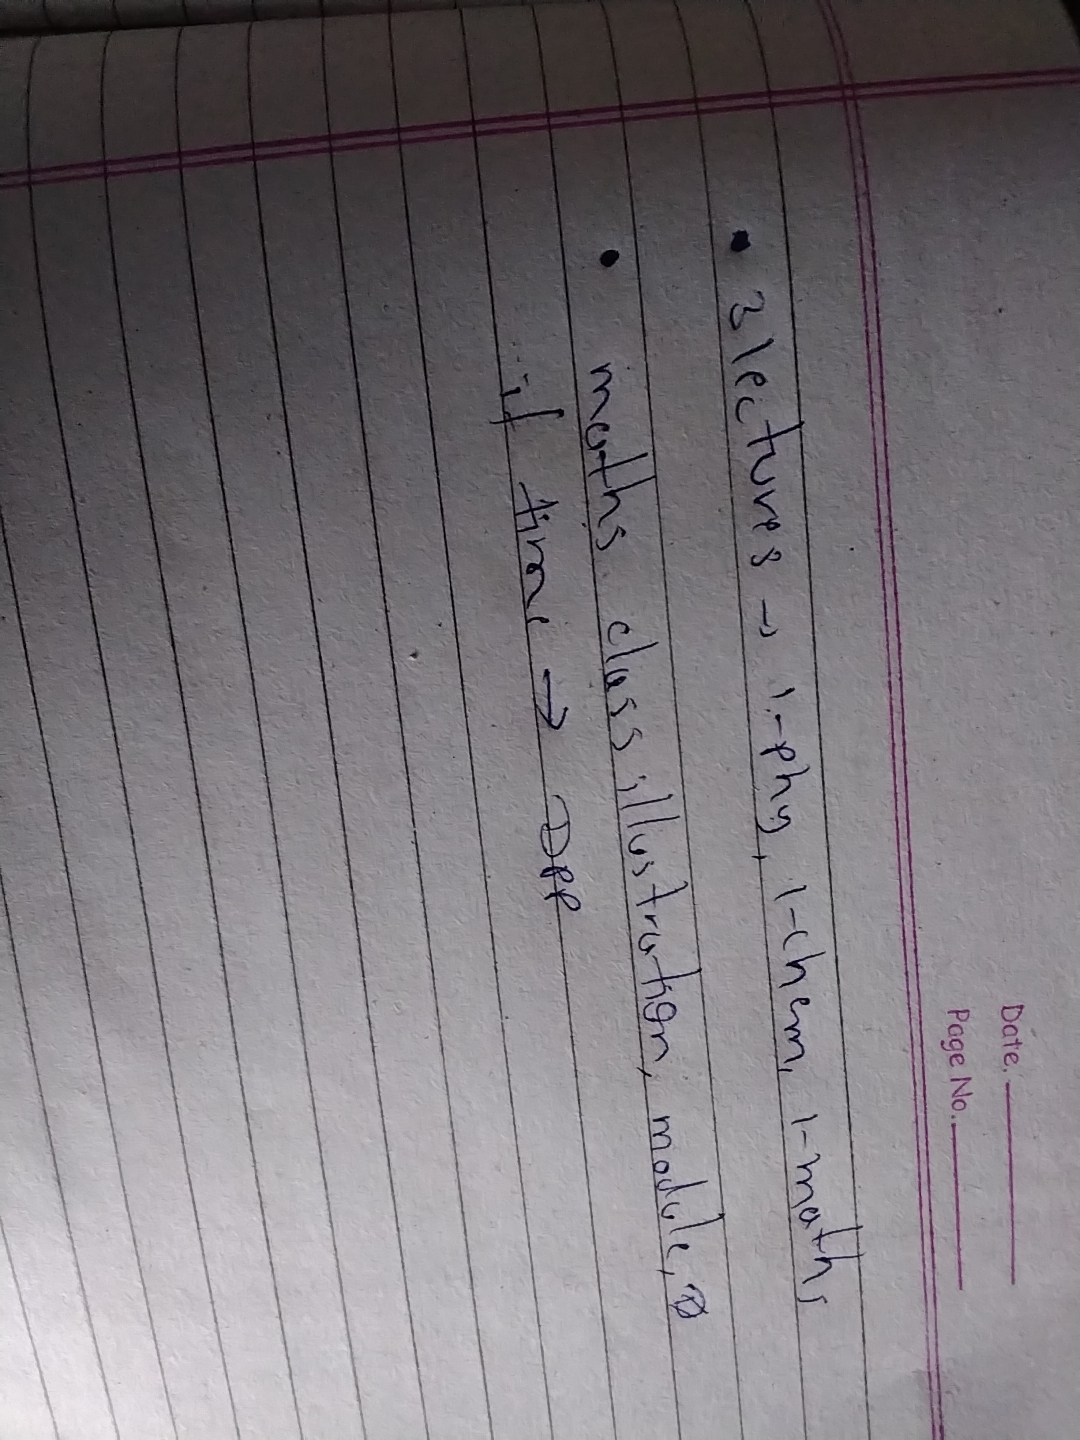 Date.
Page No.
• 3 lectures → 1-phy, 1-chem, 1-maths
• maths class illustration, module,
if time → DPP